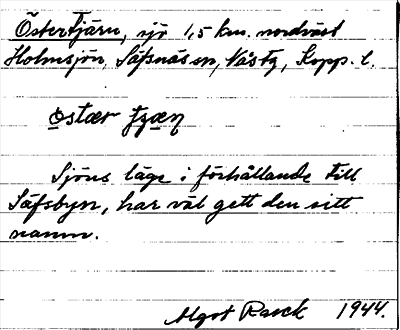 Östertjärn, sjö 1,5 km. nordväst
Holmsjön, Säfsnäs sn, Västb, Kopp. l.
ostær tjæṇ
Sjöns läge i förhållande till
Säfsbyn, har väl gett den sitt
namn.
Algot Rasck 1944.